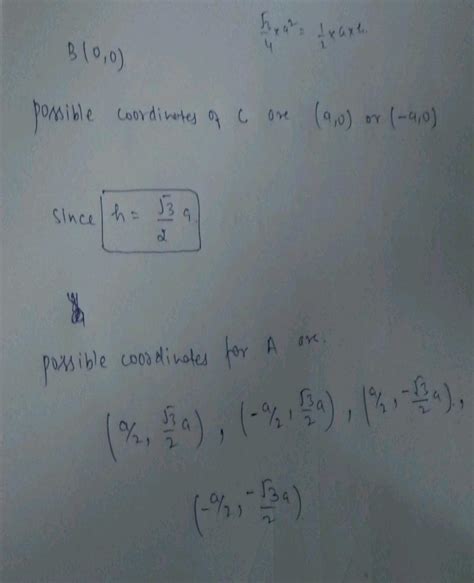 √3/4 × a² = 1/2 × a × h
B(0,0)
possible coordinates of C are (a,0) or (-a,0)
since h = √3/2 a
possible coordinates for A are.
(a/2, √3/2 a), (-a/2, √3/2 a), (a/2, -√3/2 a),
(-a/2, -√3/2 a)